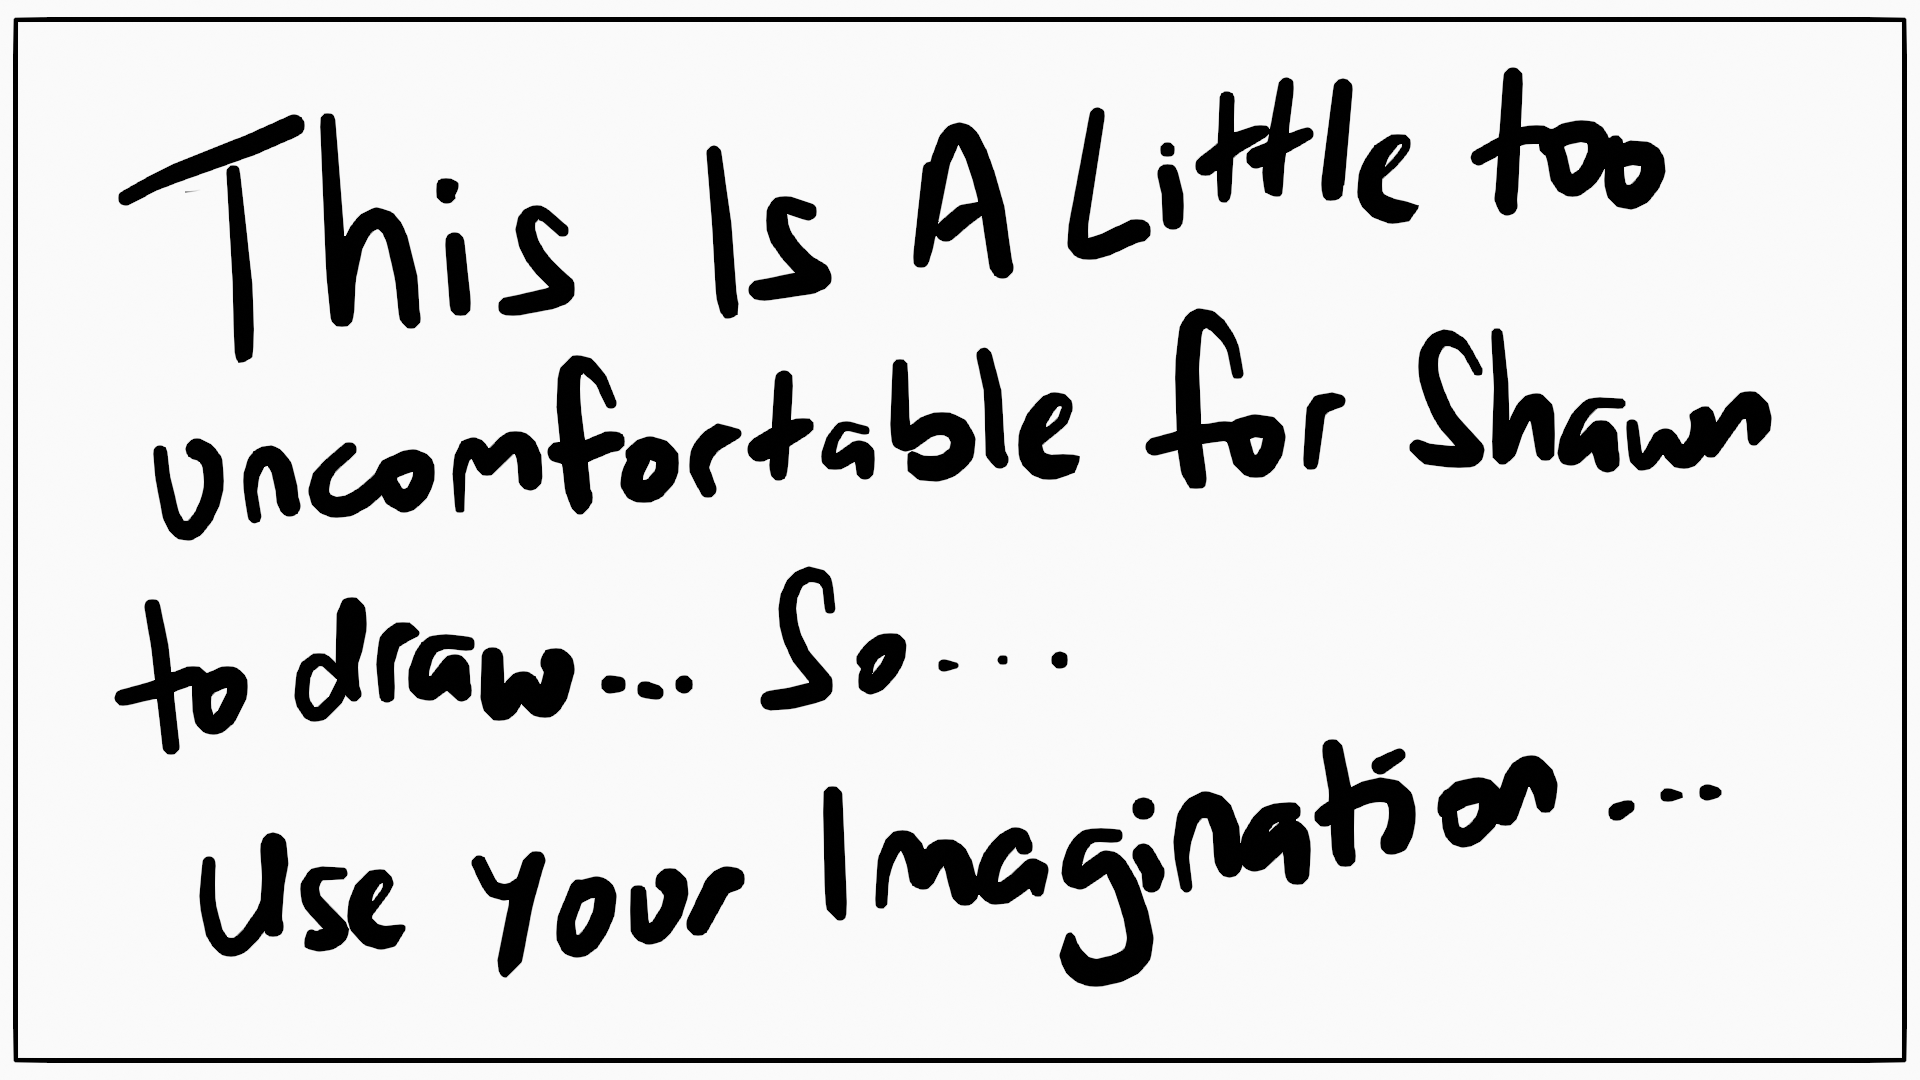 This Is A Little too
uncomfortable for Shawn
to draw... So...
Use Your Imagination...